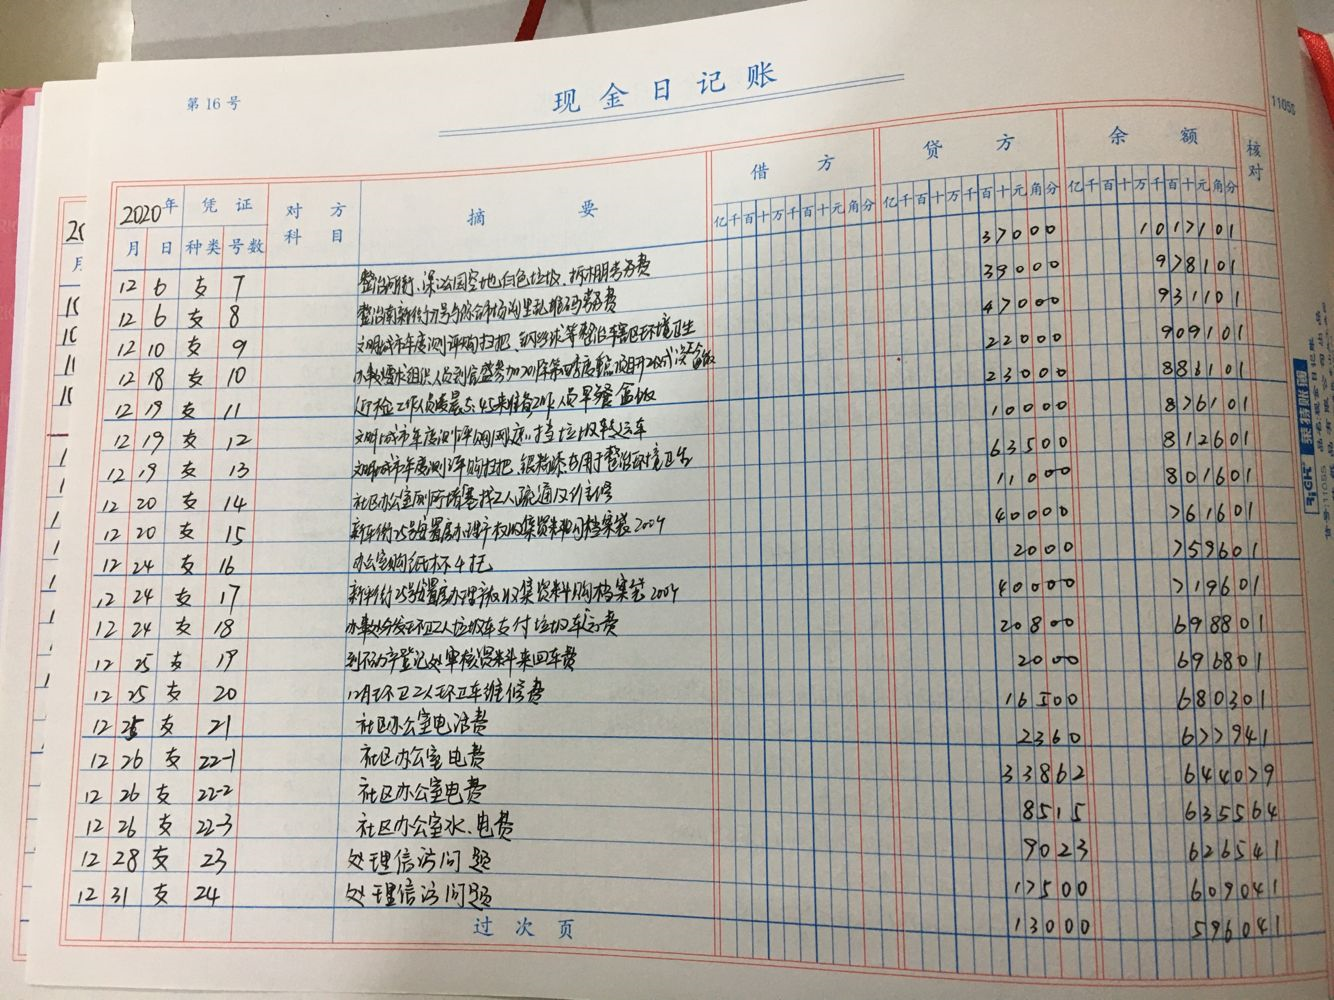 第 16 号
现金日记账
11055
2020 年 凭证 对方科目 摘要 借方 贷方 余额 核对
月 日 种类 号数 亿千百十万千百十元角分 亿千百十万千百十元角分 亿千百十万千百十元角分
12 6 支 7 整治 、深 园空地白色垃圾、拆 劳务费 37000 1017101
12 6 支 8 整治南新街 号与综合市场 里乱堆码劳务费 39000 978101
12 10 支 9 文明城市年度测评购扫把、钢丝球等整治辖区环境卫生 47000 931101
12 18 支 10 办事处 组织人员到 参加 第四季度重点项目开工仪式 盒饭 22000 909101
12 19 支 11 迎检工作人员凌晨5:45来准备工作人员早餐盒饭 23000 886101
12 19 支 12 文明城市年度测评 垃圾转运车 10000 876101
12 19 支 13 文明城市年度测评购扫把、 用于整治环境卫生 63500 812601
12 20 支 14 社区办公室厕所堵塞找工人疏通及维修 11000 801601
12 20 支 15 新平街25号安置房办理产权收集资料购档案袋200个 40000 761601
12 24 支 16 办公室购纸杯4托 2000 759601
12 24 支 17 新平街25号安置房办理产权收集资料购档案袋200个 40000 719601
12 24 支 18 办事处分发环卫工人垃圾车支付垃圾车运费 20800 698801
12 25 支 19 到不动产登记处审核资料来回车费 2000 696801
12 25 支 20 12月环卫工人环卫车维修费 16500 680301
12 25 支 21 社区办公室电话费 2360 677941
12 26 支 22-1 社区办公室电费 33862 644079
12 26 支 22-2 社区办公室电费 8515 635564
12 26 支 22-3 社区办公室水、电费 9023 626541
12 28 支 23 处理信访问题 17500 609041
12 31 支 24 处理信访问题 13000 596041
过次页